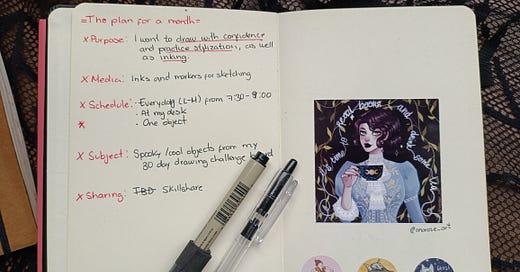 =The plan for a month=
x Purpose: I want to draw with confidence
and practice stylization, as well
as inking.
x Media: Inks and markers for sketching
x Schedule: - Everyday (L-M) from 7:30-9:00
- At my desk
x - One object
x Subject: Spooky/cool objects from my
30 day drawing challenge
x Sharing: TBD Skillshare
it's time to read books and drink some tea